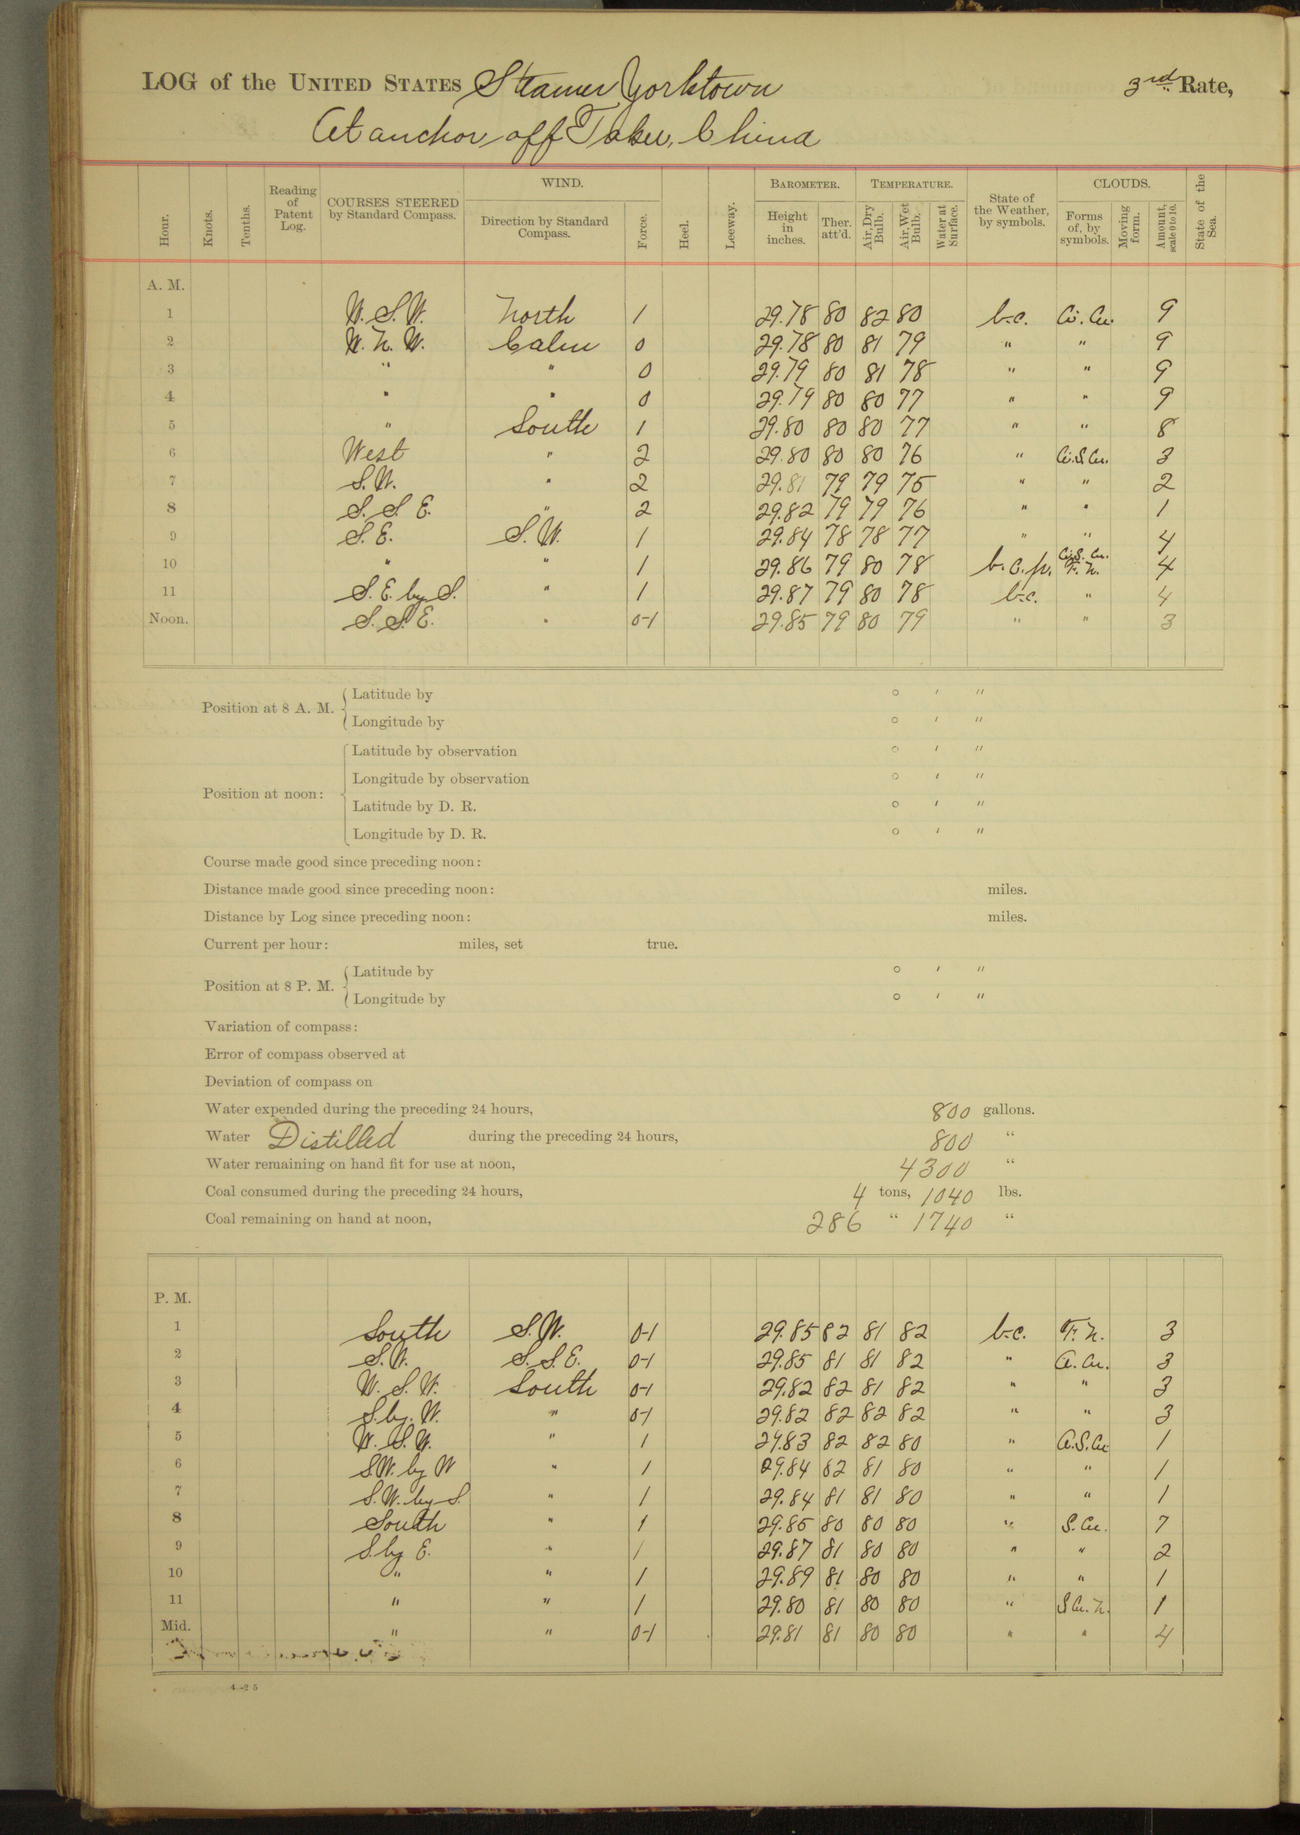 LOG of the UNITED STATES Steamer Yorktown 3rd Rate,
At anchor off Taku, China
Hour. Knots. Tenths. Reading of Patent Log. COURSES STEERED by Standard Compass. WIND. Direction by Standard Compass. Force. Heel. Leeway. BAROMETER. Height in inches. Ther. att'd. TEMPERATURE. Air, Dry Bulb. Air, Wet Bulb. Water at Surface. State of the Weather, by symbols. CLOUDS. Forms of, by symbols. Moving form. Amount, scale 0 to 10. State of the Sea.
A. M.
1 W. S. W. North 1 29.78 80 82 80 b.c. Ci. Cu. 9
2 W. N. W. Calm 0 29.78 80 81 79 " " 9
3 " " 0 29.79 80 81 78 " " 9
4 " " 0 29.79 80 80 77 " " 9
5 " South 1 29.80 80 80 77 " " 8
6 West " 2 29.80 80 80 76 " Ci. S. Cu. 3
7 S. W. " 2 29.81 79 79 75 " " 2
8 S. S. E. " 2 29.82 79 79 76 " " 1
9 S. E. S. W. 1 29.84 78 78 77 " " 4
10 " " 1 29.86 79 80 78 b. c. p. Ci. S. Cu. F. N. 4
11 S. E. by S. " 1 29.87 79 80 78 b.c. " 4
Noon. S. S. E. " 0-1 29.85 79 80 79 " " 3
Position at 8 A. M. Latitude by ° ′ ″
Longitude by ° ′ ″
Position at noon: Latitude by observation ° ′ ″
Longitude by observation ° ′ ″
Latitude by D. R. ° ′ ″
Longitude by D. R. ° ′ ″
Course made good since preceding noon:
Distance made good since preceding noon: miles.
Distance by Log since preceding noon: miles.
Current per hour: miles, set true.
Position at 8 P. M. Latitude by ° ′ ″
Longitude by ° ′ ″
Variation of compass:
Error of compass observed at
Deviation of compass on
Water expended during the preceding 24 hours, 800 gallons.
Water Distilled during the preceding 24 hours, 800 "
Water remaining on hand fit for use at noon, 4300 "
Coal consumed during the preceding 24 hours, 4 tons, 1040 lbs.
Coal remaining on hand at noon, 286 " 1740 "
P. M.
1 South S. W. 0-1 29.85 82 81 82 b.c. F. N. 3
2 S. W. S. S. E. 0-1 29.85 81 81 82 " A. Cu. 3
3 W. S. W. South 0-1 29.82 82 81 82 " " 3
4 S. by. W. " 0-1 29.82 82 82 82 " " 3
5 W. S. W. " 1 29.83 82 82 80 " A. S. Cu 1
6 SW. by W " 1 29.84 82 81 80 " " 1
7 S. W. by S. " 1 29.84 81 81 80 " " 1
8 South " 1 29.85 80 80 80 " S. Cu. 7
9 S. by E. " 1 29.87 81 80 80 " " 2
10 " " 1 29.89 81 80 80 " " 1
11 " " 1 29.80 81 80 80 " S Cu. N. 1
Mid. " " 0-1 29.81 81 80 80 " " 4
4-25